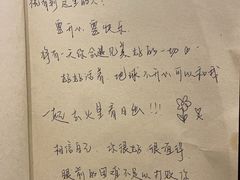 很有利 这里的人!
要开心 要快乐
将有一天你会遇见美好的一切
好好活着 地球不开心可以和我
一起去火星看日出!!!
相信自己 你很好 很值得
眼前的困难不足以打败你